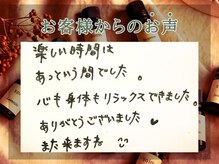 お客様からのお声
楽しい時間は
あっという間でした。
心も身体もリラックスできました。
ありがとうございました♥
また来ますね